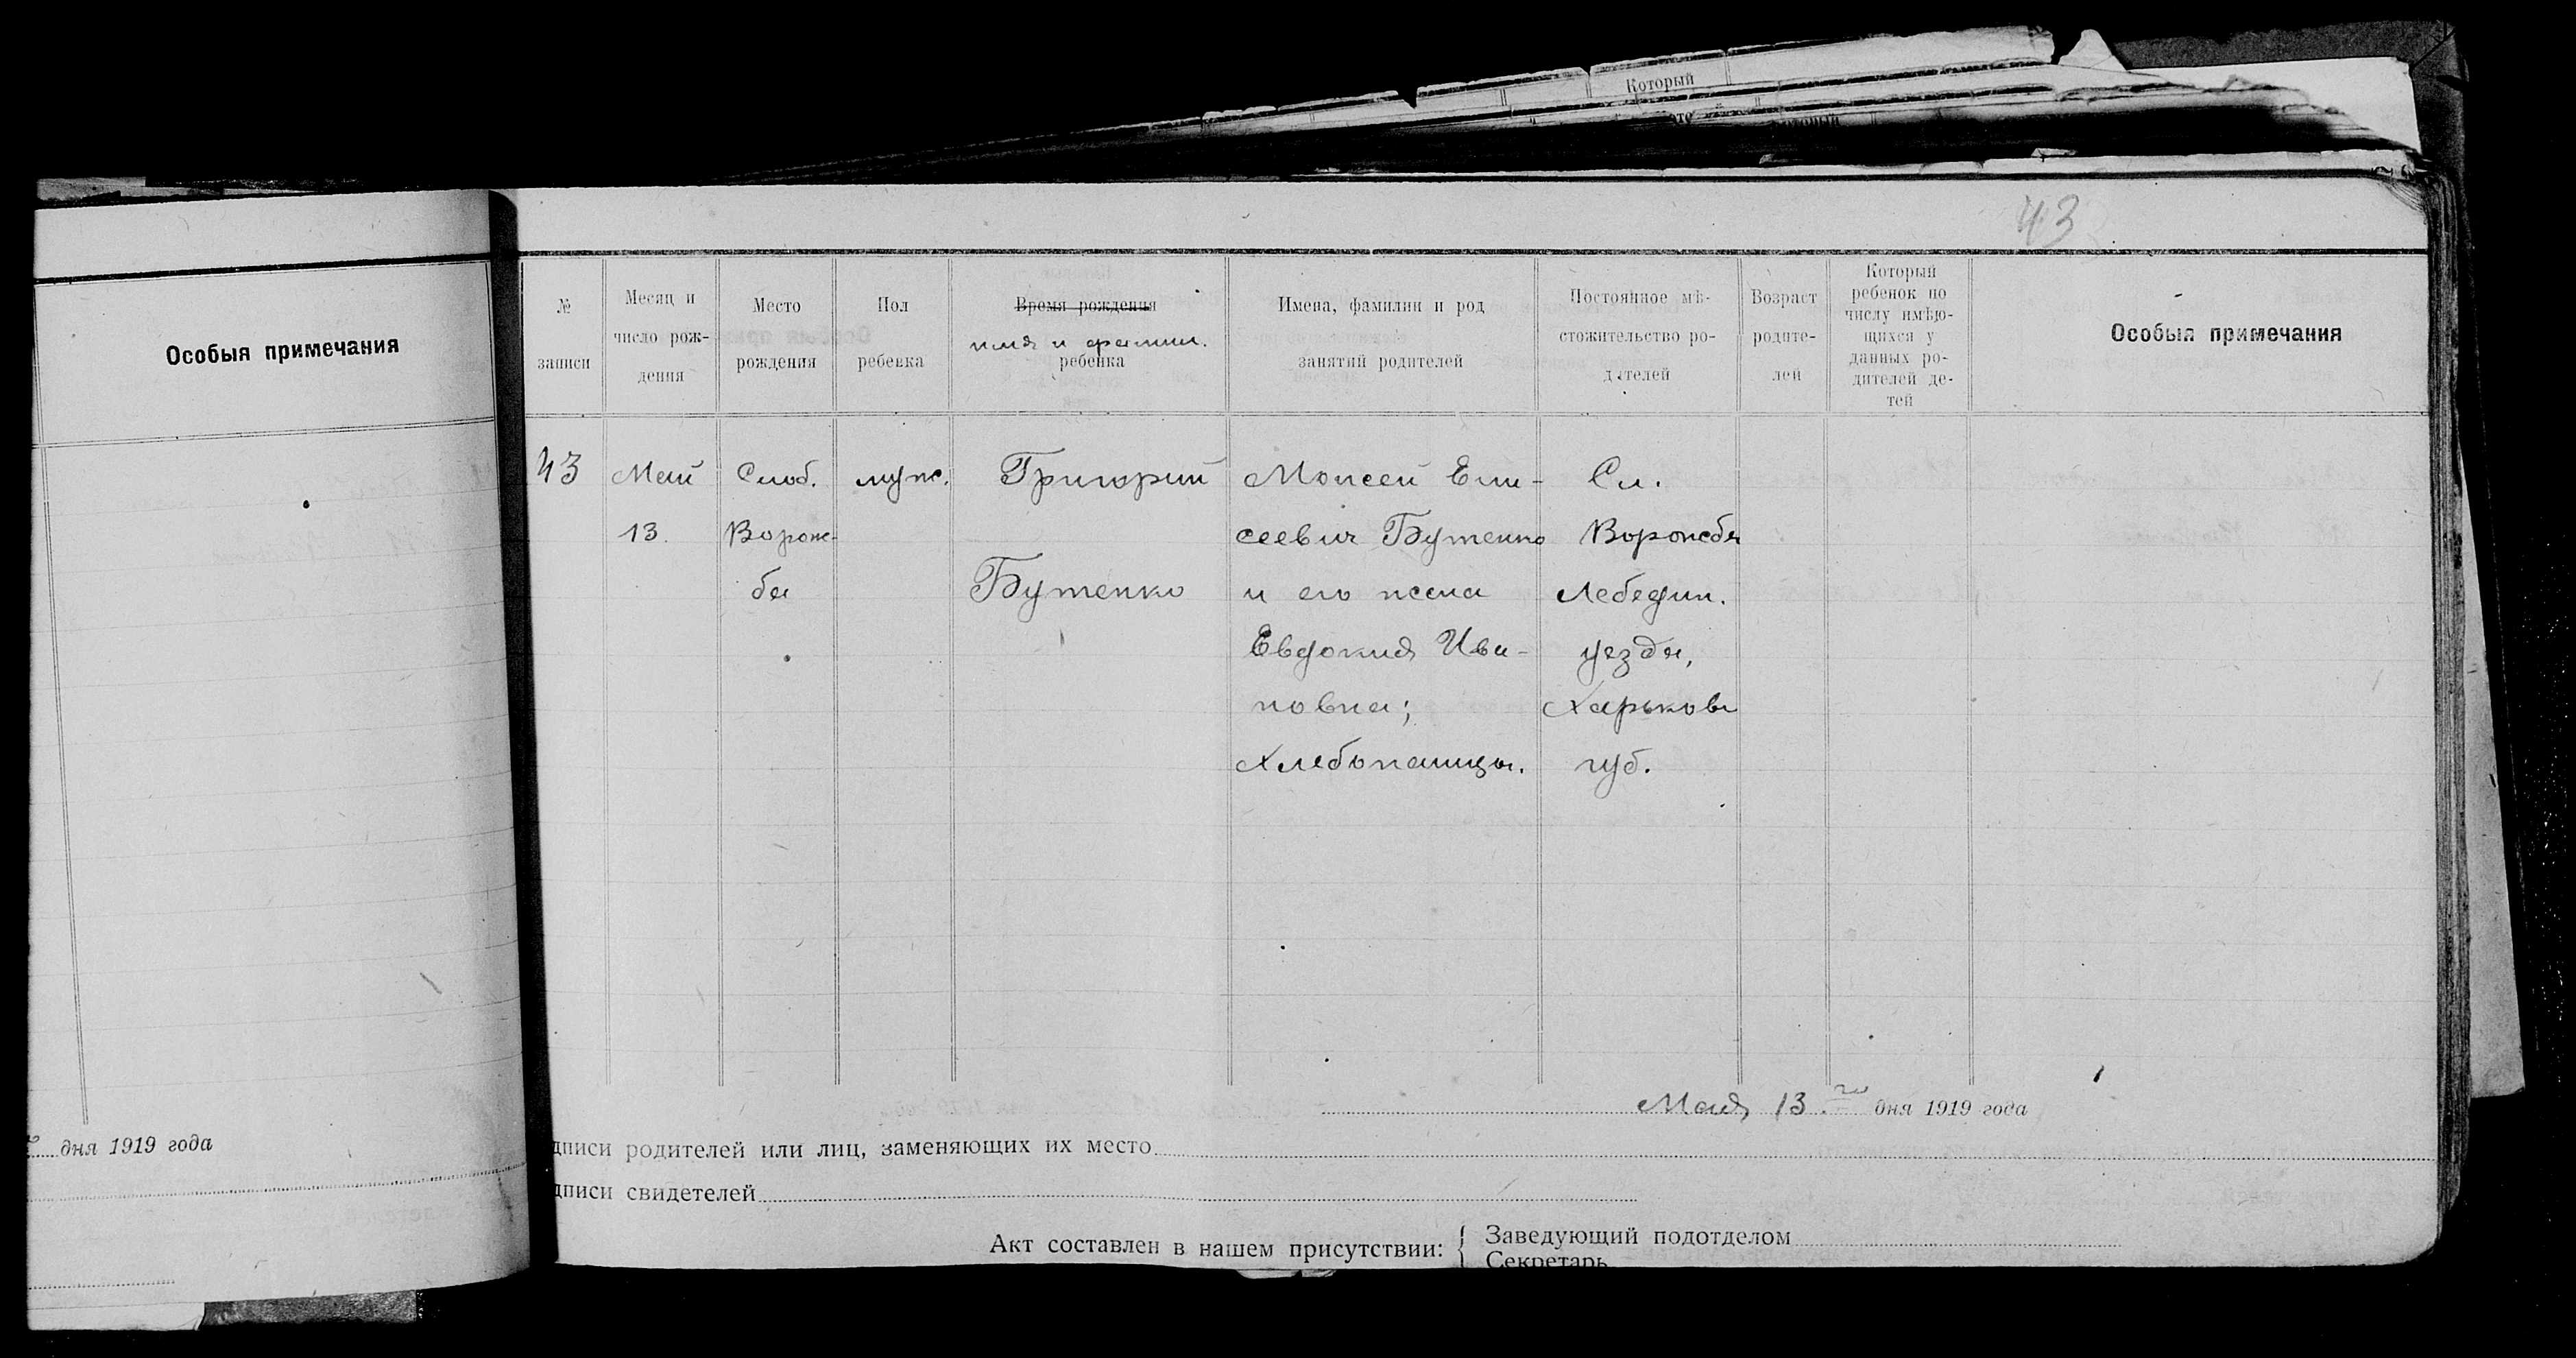 Который
43
Особыя примечания
№ записи
Месяц и число рож-дения
Место рождения
Пол ребенка
Время рождения
имя и фамил.
ребенка
Имена, фамилии и род занятий родителей
Постоянное мѣ-стожительство ро-дителей
Возраст родите-лей
Который ребенок по числу имѣю-щихся у данных ро-дителей де-тей
Особыя примечания
43 Май Слоб. муж. Григорий Моисей Ели- Сл.
13. Ворож- сеевич Бутенко Ворожба
ба Бутенко и его жена Лебедин.
Евдокия Ива- уезда,
новна; Харьков
Хлебопашцы. губ.
Мая 13го дня 1919 года
дня 1919 года
дписи родителей или лиц, заменяющих их место
дписи свидетелей
Акт составлен в нашем присутствии: { Заведующий подотделом
Секретарь